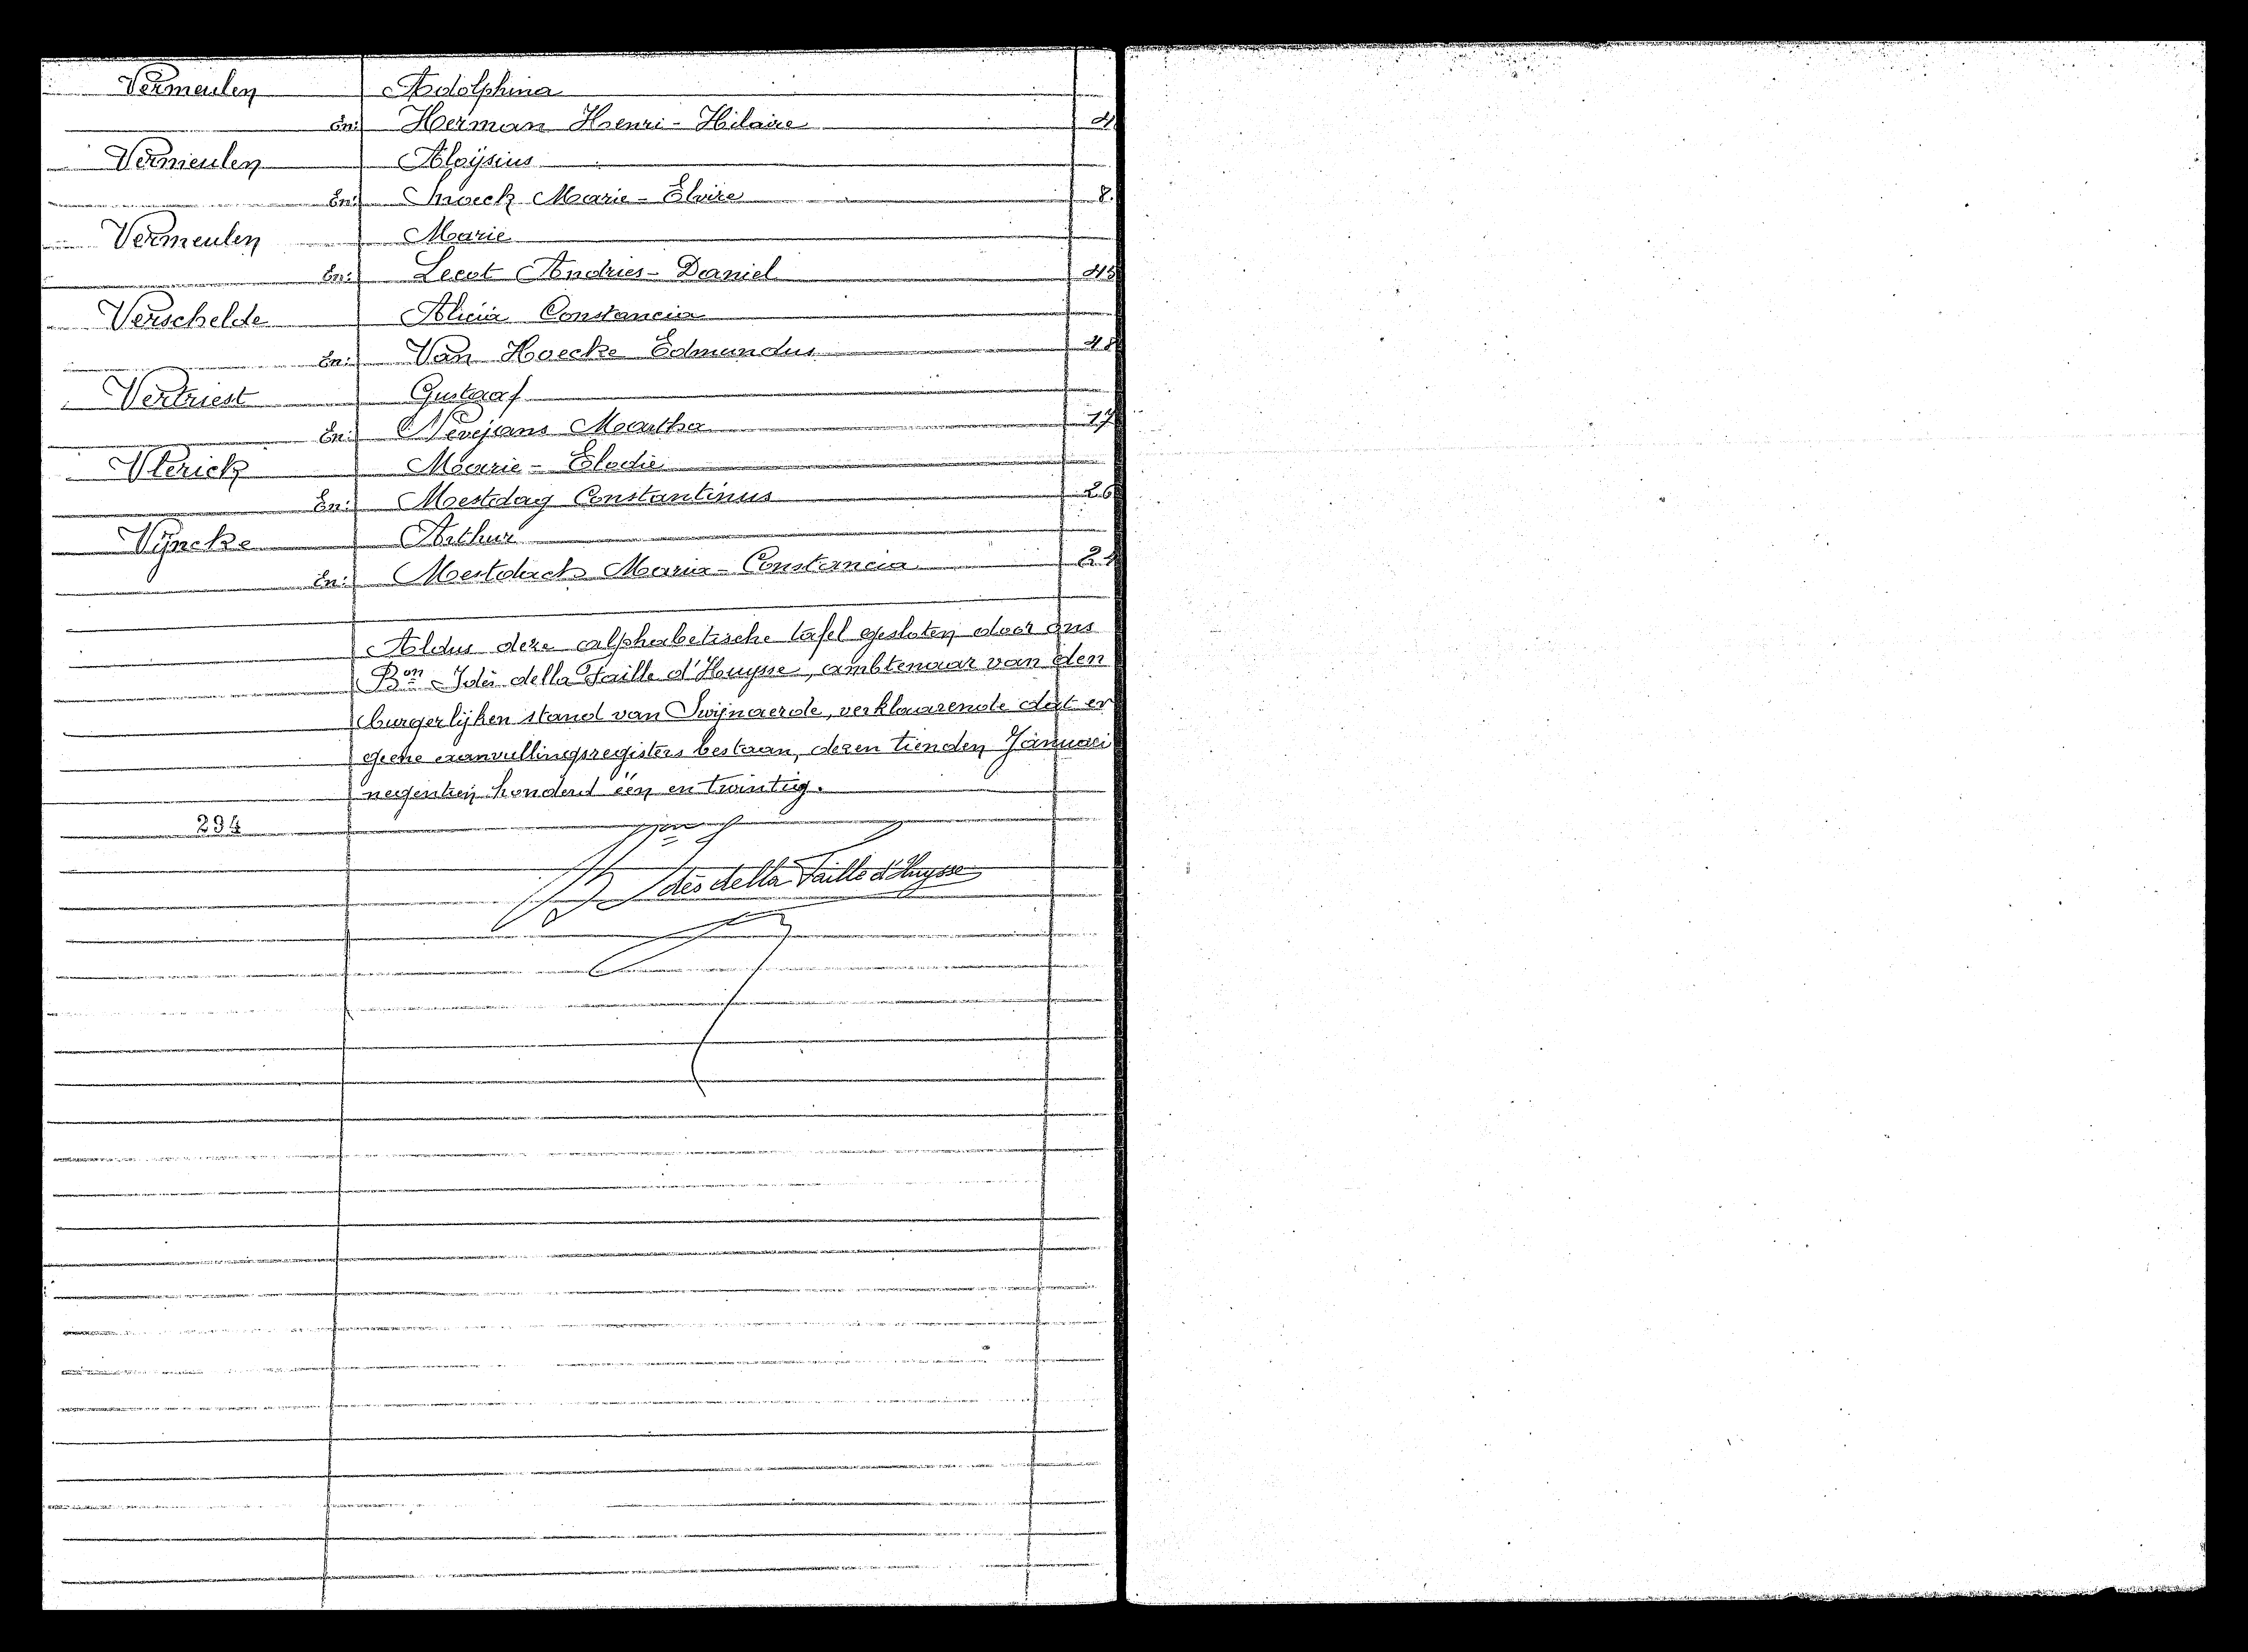 Vermeulen Adolphina
En: Herman Henri - Hilaire 4
Vermeulen Aloÿsius
En: Snoeck Marie - Elvire 8.
Vermeulen Marie
En: Lecot Andries - Daniel 45
Verschelde Alicia Constancia
En: Van Hoecke Edmundus 48
Vertriest Gustaaf
En: Nevejans Martha 17
Vlerick Marie - Elodie
En: Mestdag Constantinus 26
Vÿncke Arthur
En: Mestdach Maria - Constancia 2
Aldus deze alphabetische tafel gesloten door ons
Bon Idès della Faille d'Huysse, ambtenaar van den
burgerlijken stand van Swijnaerde, verklaarende dat er
geene aanvullingsregisters bestaan, dezen tienden Januari
negentien honderd één en twintig.
294
Bon Idès della Faille d'Huysse